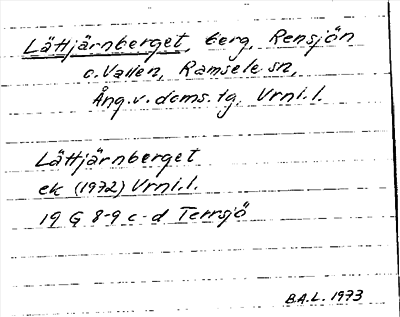 Lättjärnberget, berg, Rensjön
o. Vallen, Ramsele sn,
Ång. v. doms. tg, Vrni. l.
Lättjärnberget
ek (1972) Vrni. l.
19 G 8-9 c-d Terrsjö
B.A.L. 1973